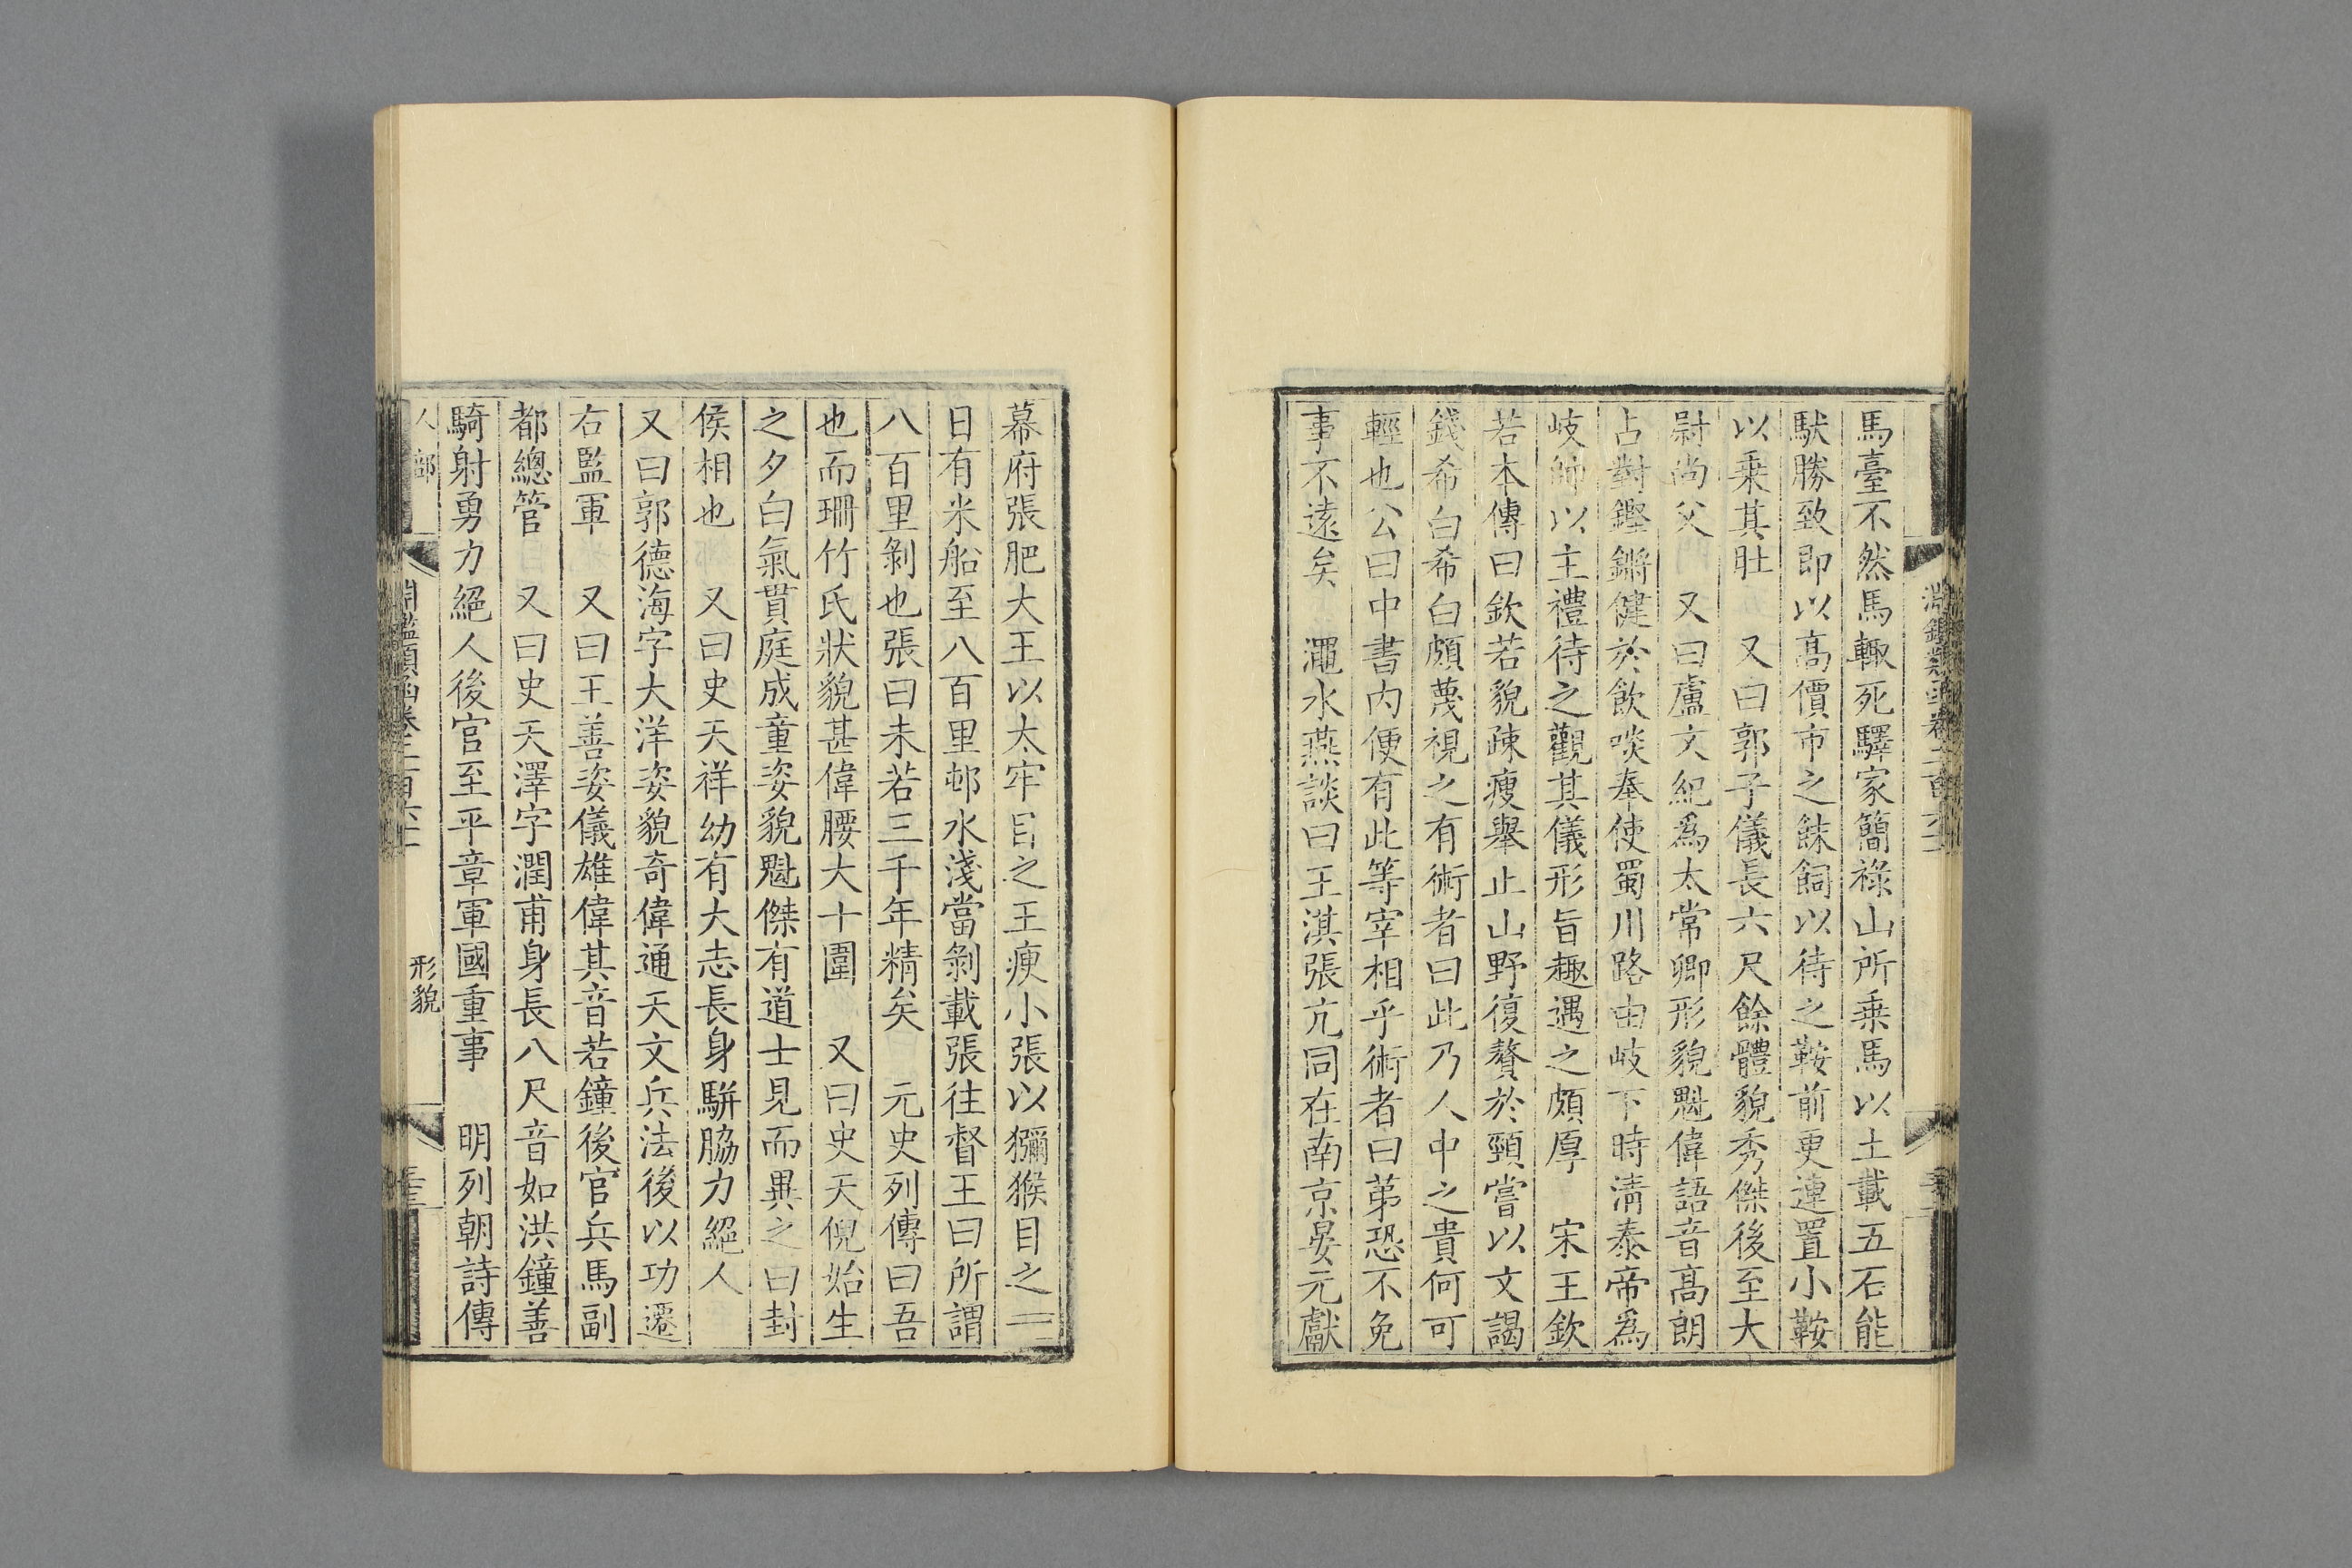 馬臺不然馬輙死驛家簡祿山所乗馬以土載五石能
馱勝致即以高價市之餗飼以待之鞍前更連置小鞍
以乗其肚　又曰郭子儀長六尺餘體貌秀傑後至大
尉尚父　又曰盧文紀爲太常卿形貌魁偉語音髙朗
占對鏗鏘健於飲啖奉使蜀川路由岐下時淸泰帝爲
岐帥以主禮待之觀其儀形旨趣遇之頗厚　宋王欽
若本傳曰欽若貌疎瘦舉止山野復贅於頸嘗以文謁
錢希白希白頗蔑視之有術者曰此乃人中之貴何可
輕也公曰中書内便有此等宰相乎術者曰第恐不免
事不遠矣　澠水燕談曰王淇張亢同在南京晏元獻
幕府張肥大王以太牢目之王瘦小張以獼猴目之一
日有米船至八百里邨水淺當剝載張往督王曰所謂
八百里剝也張曰未若三千年精矣　元史列傳曰吾
也而珊竹氏狀貌甚偉腰大十圍　又曰史天倪始生
之夕白氣貫庭成童姿貌魁傑有道士見而異之曰封
侯相也　又曰史天祥幼有大志長身駢脇力絕人
又曰郭德海字大洋姿貌奇偉通天文兵法後以功遷
右監軍　又曰王善姿儀雄偉其音若鐘後官兵馬副
都總管　又曰史天澤字潤甫身長八尺音如洪鐘善
騎射勇力絕人後官至平章軍國重事　明列朝詩傳
人部
淵鑑類函卷二百六十
形貌